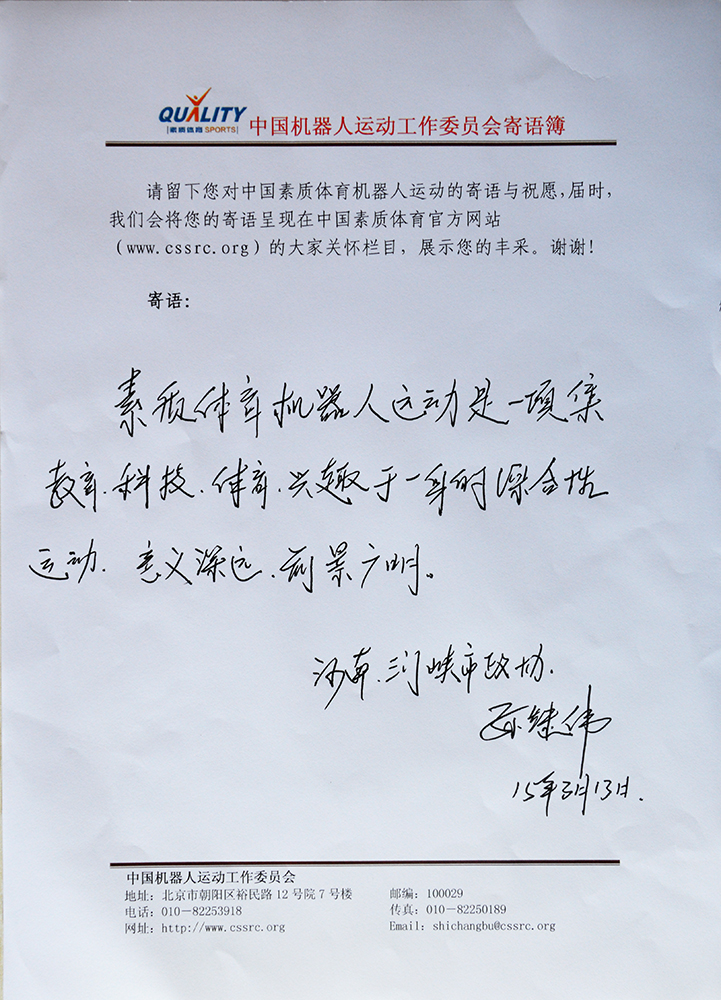 QUALITY
素质体育 SPORTS
中国机器人运动工作委员会寄语簿
请留下您对中国素质体育机器人运动的寄语与祝愿,届时,
我们会将您的寄语呈现在中国素质体育官方网站
(www.cssrc.org)的大家关怀栏目,展示您的丰采。谢谢!
寄语:
素质体育机器人运动是一项集
教育.科技.体育.兴趣于一身的综合性
运动.意义深远.前景广明。
河南.三门峡市政协.
继伟
15年3月13日.
中国机器人运动工作委员会
地址:北京市朝阳区裕民路12号院7号楼 邮编:100029
电话:010-82253918 传真:010-82250189
网址:http://www.cssrc.org Email:shichangbu@cssrc.org